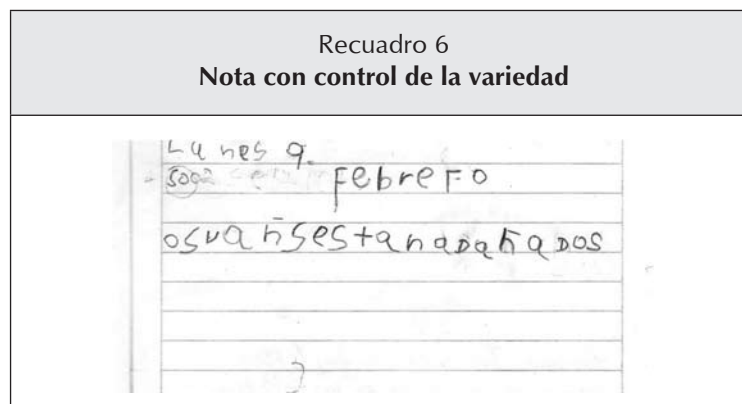 Recuadro 6
Nota con control de la variedad
Lunes 9.
Febrero
osvañsestanadañados